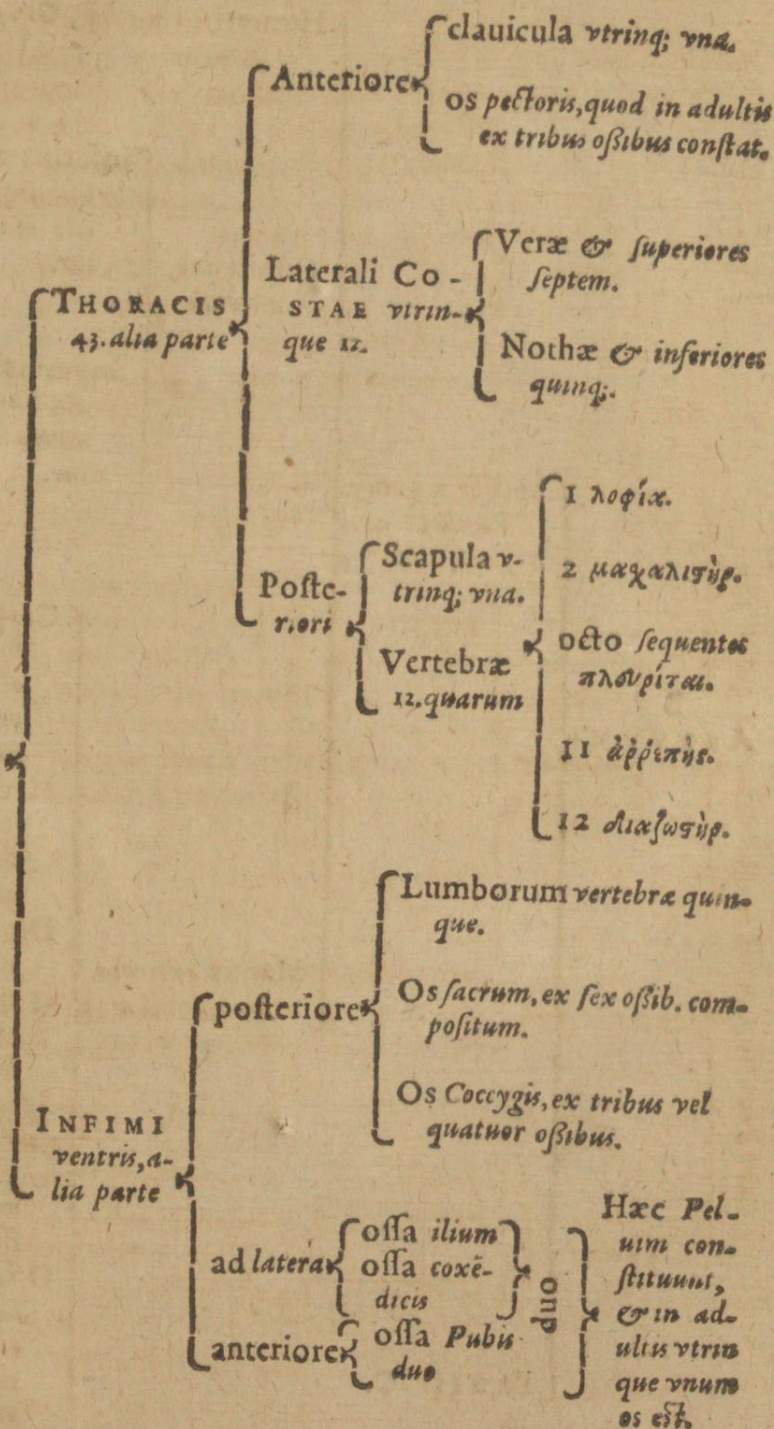 clauicula vtrinq; vna.
Anteriore
os pectoris, quod in adultis
ex tribus oſsibus conſtat.
THORACIS
43. alia parte
Laterali Co-
STAE vtrin-
que 12.
Veræ & ſuperiores
ſeptem.
Nothæ & inferiores
quinq;.
Poſte-
riori
Scapula v-
trinq; vna.
Vertebræ
12. quarum
1 λοφία.
2 μαχαλιϛὴρ.
octo ſequentes
πλευρίται.
11 ἀῤῥεπὴς.
12 διαζωϛὴρ.
INFIMI
ventris, a-
lia parte
poſteriore
Lumborum vertebræ quin-
que.
Os ſacrum, ex ſex oſsib. com-
poſitum.
Os Coccygis, ex tribus vel
quatuor oſsibus.
ad latera
oſſa ilium
oſſa coxē-
dicis
duo
anteriore
oſſa Pubis
duo
Hæc Pel-
uim con-
ſtituunt,
& in ad-
ultis vtrin
que vnum
os eſt.